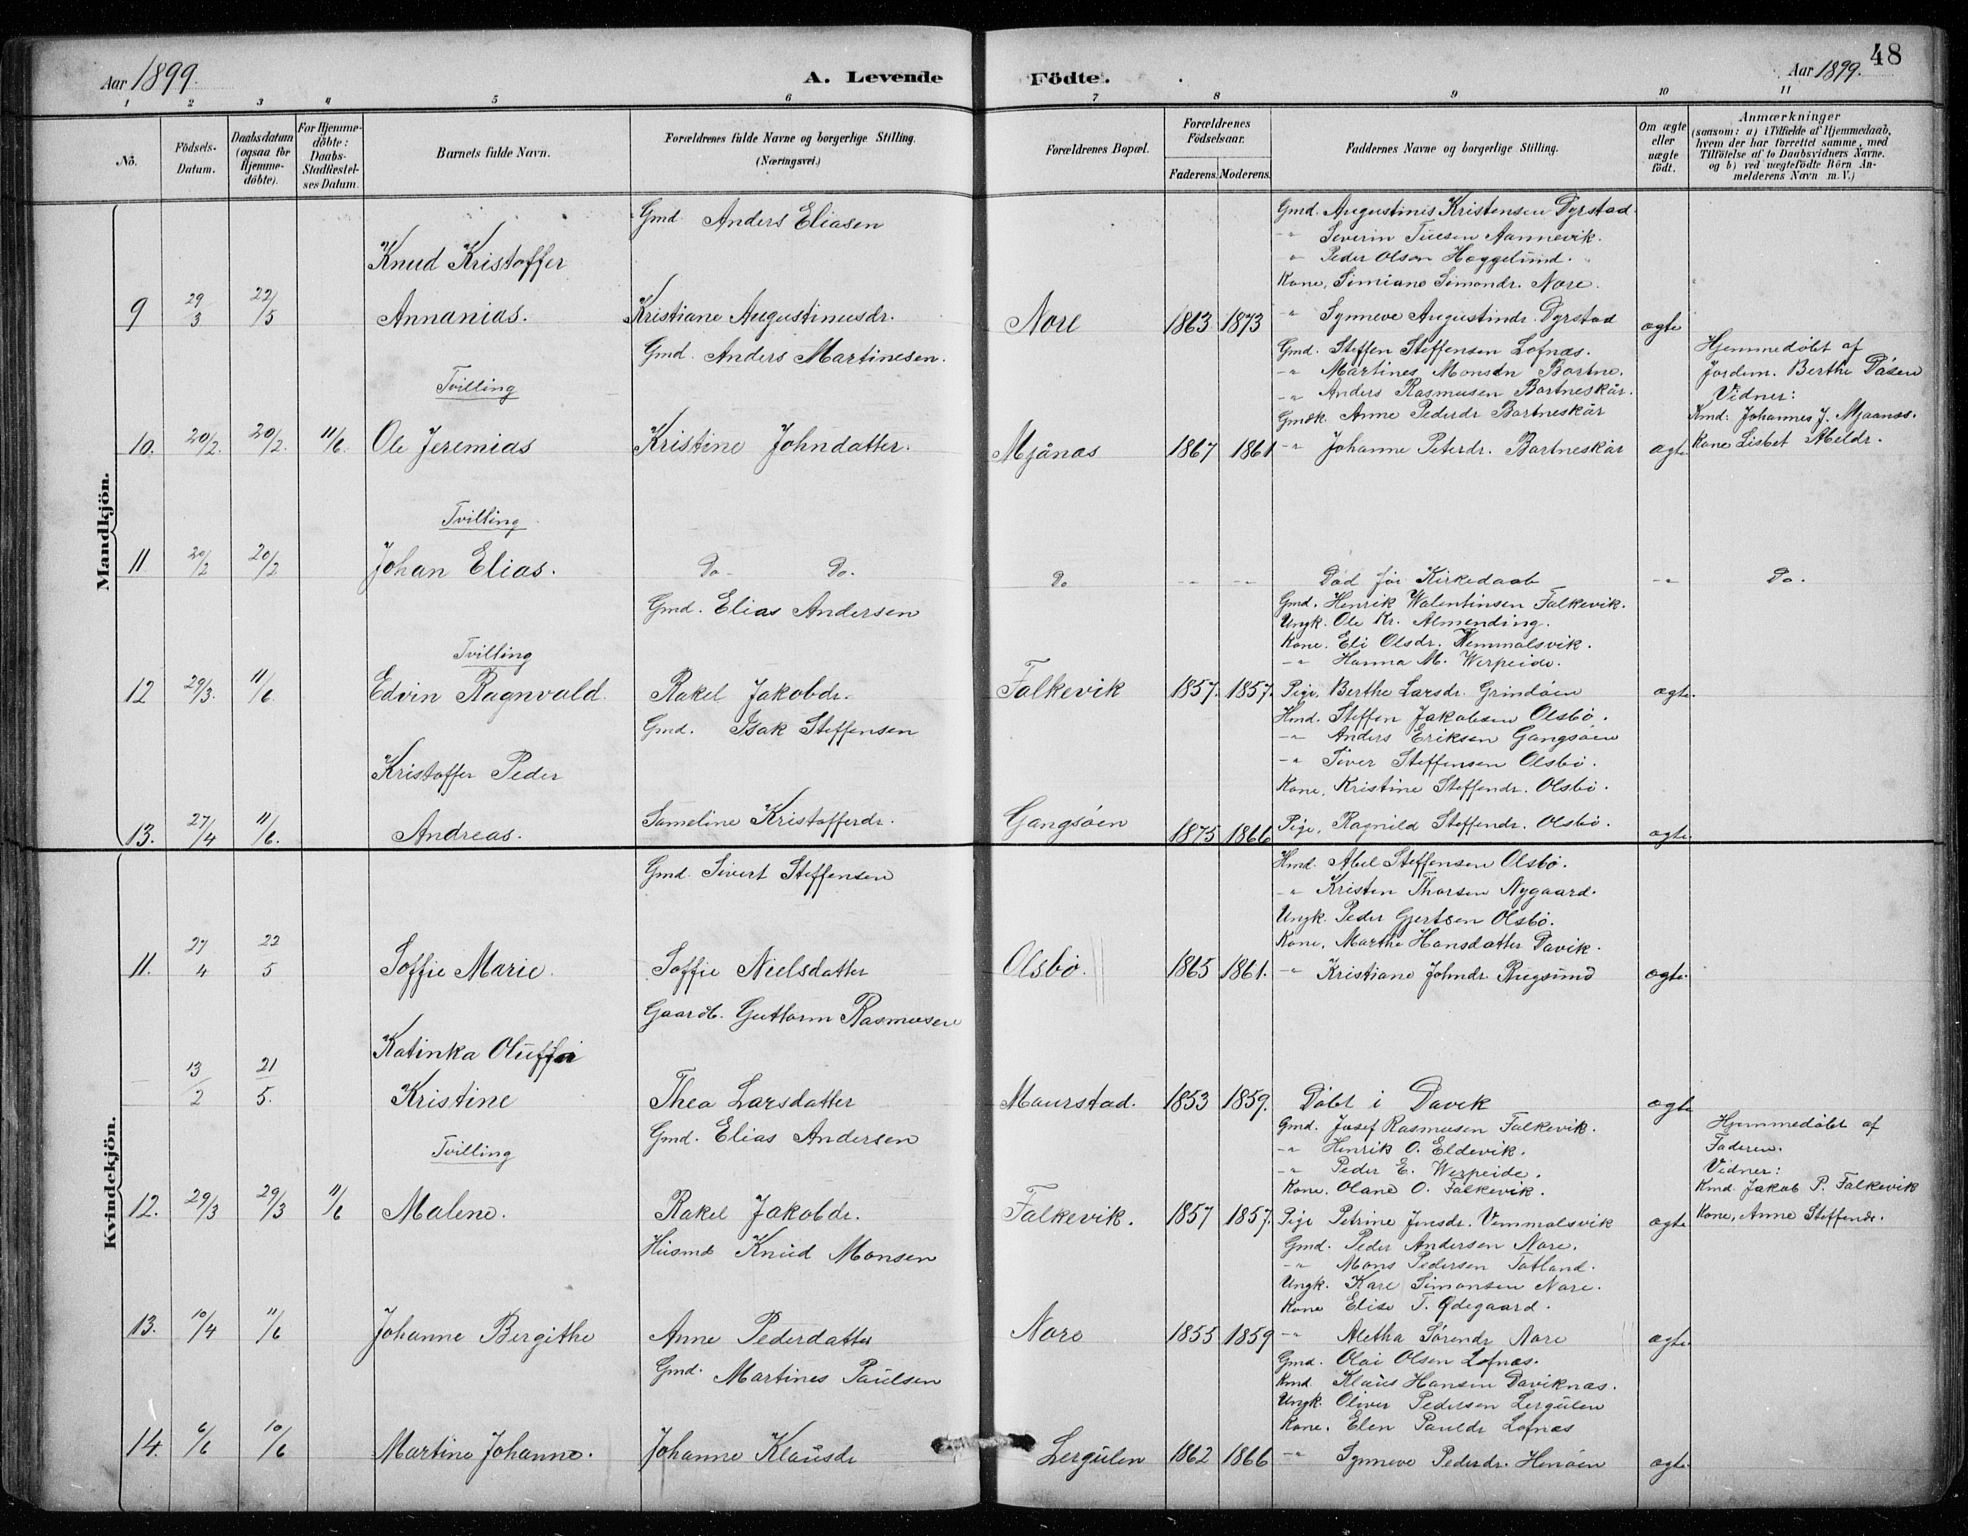 48
Aar 1899.
A. Levende Födte.
Aar 1899.
1 2 3 4 5 6 7 8 9 10 11
No.
Födsels-Datum.
Daabsdatum (ogsaa for Hjemme-döbte).
For Hjemme-döbte: Daabs-Stadfæstel-ses Datum.
Barnets fulde Navn.
Forældrenes fulde Navne og borgerlige Stilling. (Næringsvei.)
Forældrenes Bopæl.
Forældrenes Födselsaar.
Faderens. Moderens.
Faddernes Navne og borgerlige Stilling.
Om ægte eller uægte födt.
Anmærkninger
(saasom: a) i Tilfælde af Hjemmedaab,
hvem der har forrettet samme, med
Tilföielse af to Daabsvidners Navne.
og b) ved uægtefödte Börn An-
melderens Navn m.V.)
Mandkjön.
Gmd. Anders Eliasen
Gmd. Augustinis Kristensen Dyrstad.
-"- Severin Tuesen Aannevik.
Knud Kristoffer
" Peder Olsen Heggelund.
Kone, Simiane Simondr. Nore.
9 29/3 22/5 Annanias. Kristiane Augustinusdr. Nore 1863 1873 " Synneve Augustindr. Dyrstad ægte
Gmd. Anders Martinesen.
Gmd. Steffen Steffensen Lofnæs.
Hjemmedøbt af
Tvilling
-"- Martines Monsen Bortne.
Jordem. Berthe Dåsen
-"- Anders Rasmusen Bortneskår.
Vidner:
Gmdk. Anne Pederdr Bortneskår
Kmd. Johannes J. Mjaanæs.
10. 20/2. 20/2. 11/6. Ole Jeremias Kristine Johndatter. Mjånæs 1867 1861 -"- Johanne Peterdr. Bortneskår ægte. Kone Lisbet Abeldr.
Tvilling
11 20/2 20/2 Johan Elias. Do- Do. Do -"- -"- Død før Kirkedaab -"- Do.
Gmd. Elias Andersen
Gmd. Henrik Walentinsen Falkevik.
Ungk. Ole Kr. Almending.
Kone. Eli Olsdr. Vemmalsvik.
Tvilling
-"- Hanna M. Werpeide.
12 29/3. 11/6. Edvin Ragnvald. Rakel Jakobdr. Falkevik 1857. 1857. Pige, Berthe Larsdr. Grindøen ægte.
Gmd. Isak Steffensen
Hmd. Steffen Jakobsen Olsbø.
-"- Anders Eriksen Gangsøen
Kristoffer Peder
-"- Siver Steffensen Olsbø.
Kone, Kristine Steffendr. Olsbø.
13. 27/4 11/6. Andreas. Sameline Kristofferdr. Gangsøen 1875 1866 Pige, Ragnild Steffendr. Olsbø. ægte.
Kvindekjön.
Gmd. Sivert Steffensen
Hmd. Abel Steffensen Olsbø.
-"- Kristen Thorsen Nygaard.
Ungk. Peder Gjertsen Olsbø.
Kone, Marthe Hansdatter Davik.
11. 27/4 22/5 Soffie Marie. Soffie Nielsdatter Olsbø. 1865 1861. -"- Kristiane Johndr. Rugsund ægte.
Gaardb. Guttorm Rasmusen
Katinka Oluffa
- 13/2 21/5. Kristine Thea Larsdatter Maurstad. 1853 1859. Døbt i Davik ægte
Gmd. Elias Andersen
Gmd. Josef Rasmusen Falkevik.
Hjemmedøbt af
Tvilling
-"- Henrik O. Eldevik.
Faderen.
-"- Peder E. Werpeide.
Vidner:
Kone. Olane O. Falkevik.
Kmd. Jakob P. Falkevik
12. 29/3 29/3 11/6 Malene. Rakel Jakobdr. Falkevik. 1857 1857. Pige Petrine Jensdr. Vemmalsvik ægte Kone, Anne Steffendr.
Husmd Knud Monsen
Gmd. Peder Andersen Nore.
-"- Mons Pedersen Totland.
Ungk. Kare Simonsen Nore.
Kone Elise T. Ødegaard.
13. 10/4 11/6 Johanne Bergithe Anne Pederdatter Nore 1855 1859 -"- Aletha Sørendr Nore ægte.
Gmd. Martines Paulsen
Gmd. Olai Olsen Lofnæs.
Kmd. Klaus Hansen Daviknæs.
Ungk. Oliver Pedersen Lergulen
Kone. Elen Pauldr Lofnæs
14. 6/6 10/6 Martine Johanne. Johanne Klausdr Lergulen 1862 1866 -"- Synneve Pederdr. Henøen ægte.